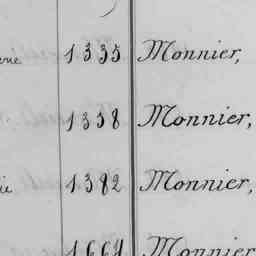 1335 Monnier,
1338 Monnier,
1382 Monnier,
1664 Monnier